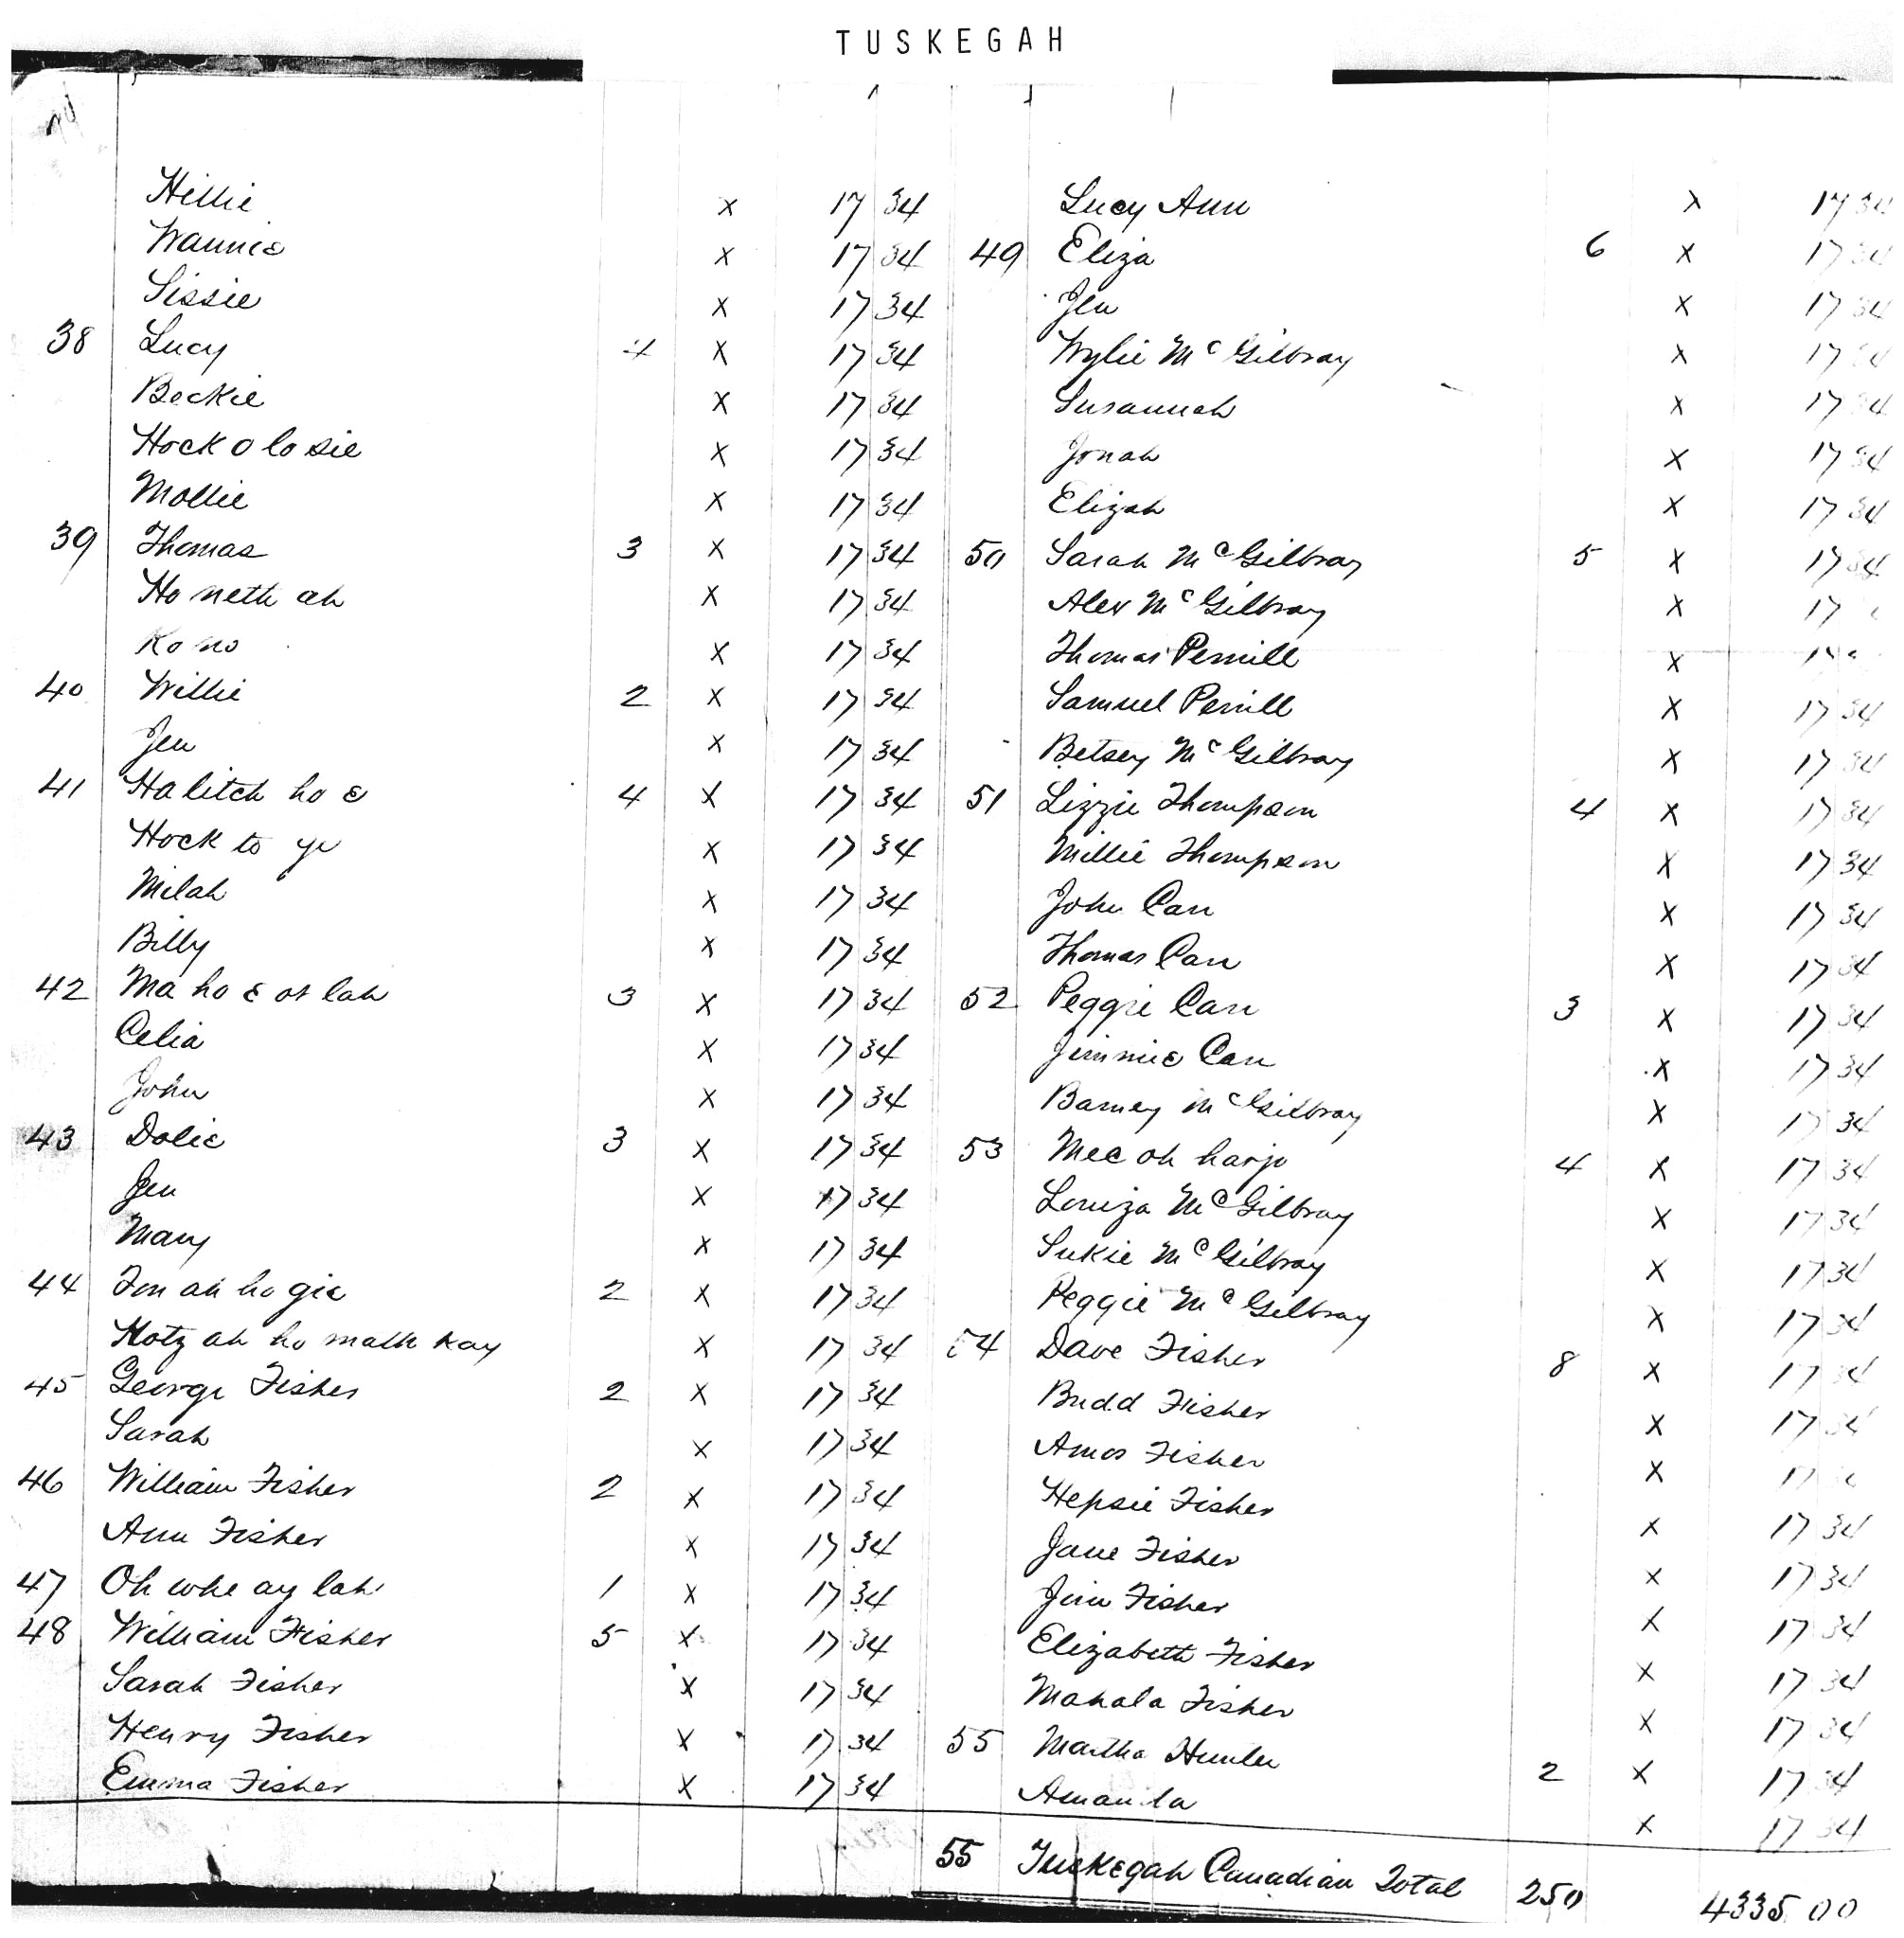 TUSKEGAH
Hillie x 17 34
Wannie x 17 34
Sissie x 17 34
38 Lucy 4 x 17 34
Beckie x 17 34
Hock o lo sie x 17 34
Mollie x 17 34
39 Thomas 3 x 17 34
Ho neth ah x 17 34
Ko no x 17 34
40 Willie 2 x 17 34
Jen x 17 34
41 Ha litch ho e 4 x 17 34
Hock to ye x 17 34
Milah x 17 34
Billy x 17 34
42 Ma ho e ot lah 3 x 17 34
Celia x 17 34
John x 17 34
43 Dolie 3 x 17 34
Jen x 17 34
Mary x 17 34
44 Fon ah ho gie 2 x 17 34
Hotz ah ho math kay x 17 34
45 George Fisher 2 x 17 34
Sarah x 17 34
46 William Fisher 2 x 17 34
Ann Fisher x 17 34
47 Oh whe ay lah 1 x 17 34
48 William Fisher 5 x 17 34
Sarah Fisher x 17 34
Henry Fisher x 17 34
Emma Fisher x 17 34
Lucy Ann x 17 34
49 Eliza 6 x 17 34
Jen x 17 34
Wylie McGilbray x 17 34
Susannah x 17 34
Jonah x 17 34
Elizah x 17 34
50 Sarah McGilbray 5 x 17 34
Alex McGilbray x 17
Thomas x 17
Samuel x 17 34
Betsey McGilbray x 17 34
51 Lizzie Thompson 4 x 17 34
Millie Thompson x 17 34
John Carr x 17 34
Thomas Carr x 17 34
52 Peggie Carr 3 x 17 34
Jimmie Carr x 17 34
Barney McGilbray x 17 34
53 Mec oh harjo 4 x 17 34
Louiza McGilbray x 17 34
Sukie McGilbray x 17 34
Peggie McGilbray x 17 34
54 Dave Fisher 8 x 17 34
Budd Fisher x 17 34
Amos Fisher x 17
Hepsie Fisher x 17 34
Jane Fisher x 17 34
Jim Fisher x 17 34
Elizabeth Fisher x 17 34
Mahala Fisher x 17 34
55 Martha Hunter 2 x 17 34
Amanda x 17 34
55 Tuskegah Canadian Total 250 4335 00